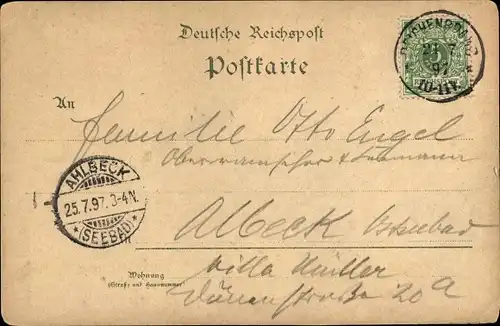 Deutsche Reichspost
Postkarte
21 7
97
10-11V.
An
Familie Otto Engel
AHLBECK
25.7.97. 3-4N.
* (SEEBAD) *
Albeck Ostseebad
Wohnung
(Straße und Hausnummer)
Villa Müller
Dünenstraße 20a